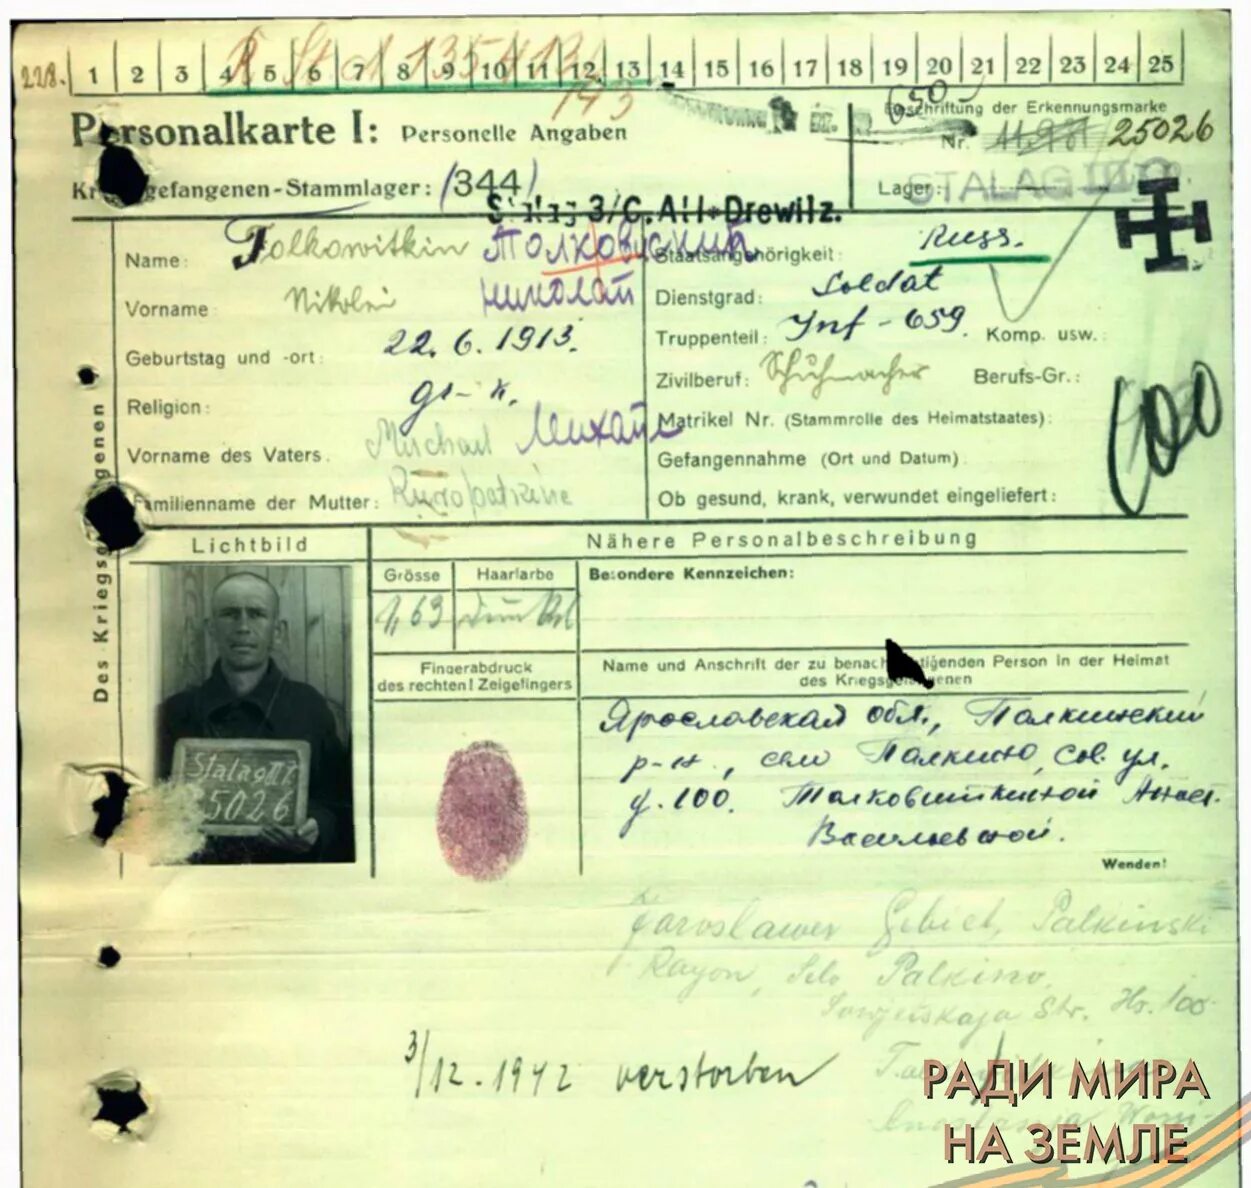 228. 1 2 3 4 5 6 7 8 9 10 11 12 13 14 15 16 17 18 19 20 21 22 23 24 25
Personalkarte I: Personelle Angaben
Beschriftung der Erkennungsmarke
Nr. 25026
Kriegsgefangenen-Stammlager: (344)
Lager: STALAG
Stalag 3/C. Alt-Drewitz.
Name: Tolkowitkin
Staatsangehörigkeit: Russ.
Vorname: Nikolai Николай
Dienstgrad: Soldat
Geburtstag und -ort: 22. 6. 1913.
Truppenteil: Inf - 659. Komp. usw.:
Religion: gr-k.
Zivilberuf: Schuhmacher Berufs-Gr.:
400
Matrikel Nr. (Stammrolle des Heimatstaates):
Vorname des Vaters: Michael Михаил
Gefangennahme (Ort und Datum)
Familienname der Mutter:
Ob gesund, krank, verwundet eingeliefert:
Des Kriegsgefangenen
Lichtbild
Nähere Personalbeschreibung
Grösse Haarfarbe
Besondere Kennzeichen:
1,63 dunkel
Fingerabdruck
des rechten! Zeigefingers
Name und Anschrift der zu benachrichtigenden Person in der Heimat
des Kriegsgefangenen
Stalag III C
25026
Ярославская обл., Палкинский
р-н, село Палкино, Сов. ул.
д. 100. Толковиткиной Анаст.
Васильевной.
Wenden!
Jaroslawer Gebiet, Palkinski
Rayon, Selo Palkino,
Sowjetskaja Str. Hs. 100
3/12. 1942 verstorben
РАДИ МИРА
НА ЗЕМЛЕ